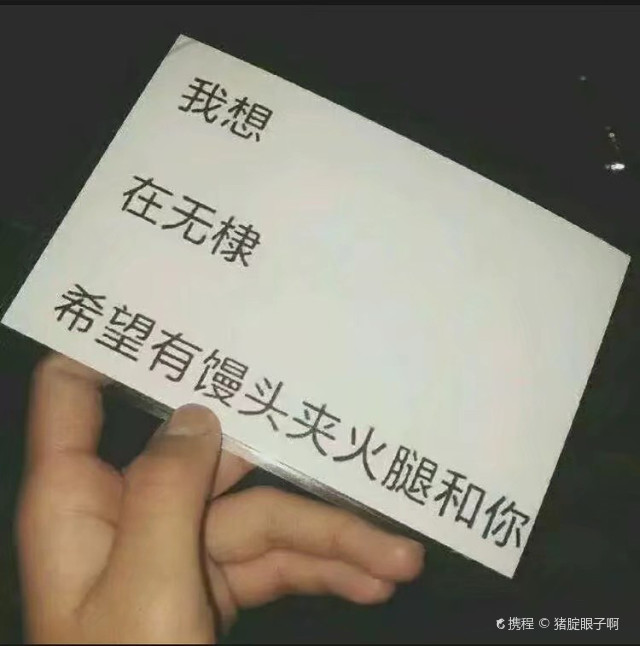 我想
在无棣
希望有馒头夹火腿和你
携程 © 猪腚眼子啊